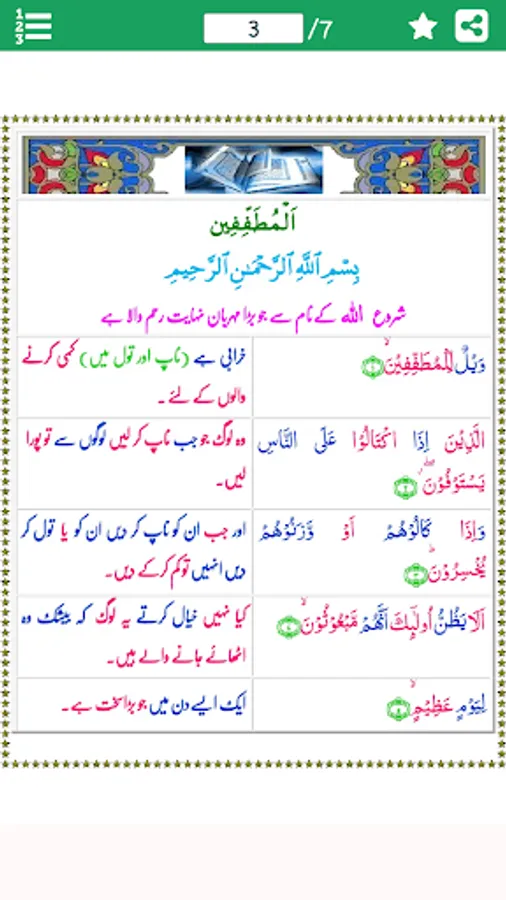 1
2
3
3 /7
اَلْمُطَفِّفِين
بِسْمِ اللَّهِ الرَّحْمَٰنِ الرَّحِيمِ
شروع اللہ کے نام سے جو بڑا مہربان نہایت رحم والا ہے
وَيْلٌ لِّلْمُطَفِّفِيْنَۙ ۝۱
خرابی ہے (ناپ اور تول میں) کمی کرنے
والوں کے لئے ۔
الَّذِيْنَ اِذَا اكْتَالُوْا عَلَى النَّاسِ
يَسْتَوْفُوْنَۖ ۝۲
وہ لوگ جو جب ناپ کر لیں لوگوں سے تو پورا
لیں۔
وَاِذَا كَالُوْهُمْ اَوْ وَّزَنُوْهُمْ
يُخْسِرُوْنَؕ ۝۳
اور جب ان کو ناپ کر دیں ان کو یا تول کر
دیں انہیں تو کم کرکے دیں۔
اَلَا يَظُنُّ اُولٰٓئِكَ اَنَّهُمْ مَّبْعُوْثُوْنَۙ ۝۴
کیا نہیں خیال کرتے یہ لوگ کہ بیشک وہ
اٹھائے جانے والے ہیں۔
لِيَوْمٍ عَظِيْمٍۙ ۝۵
ایک ایسے دن میں جو بڑا سخت ہے ۔